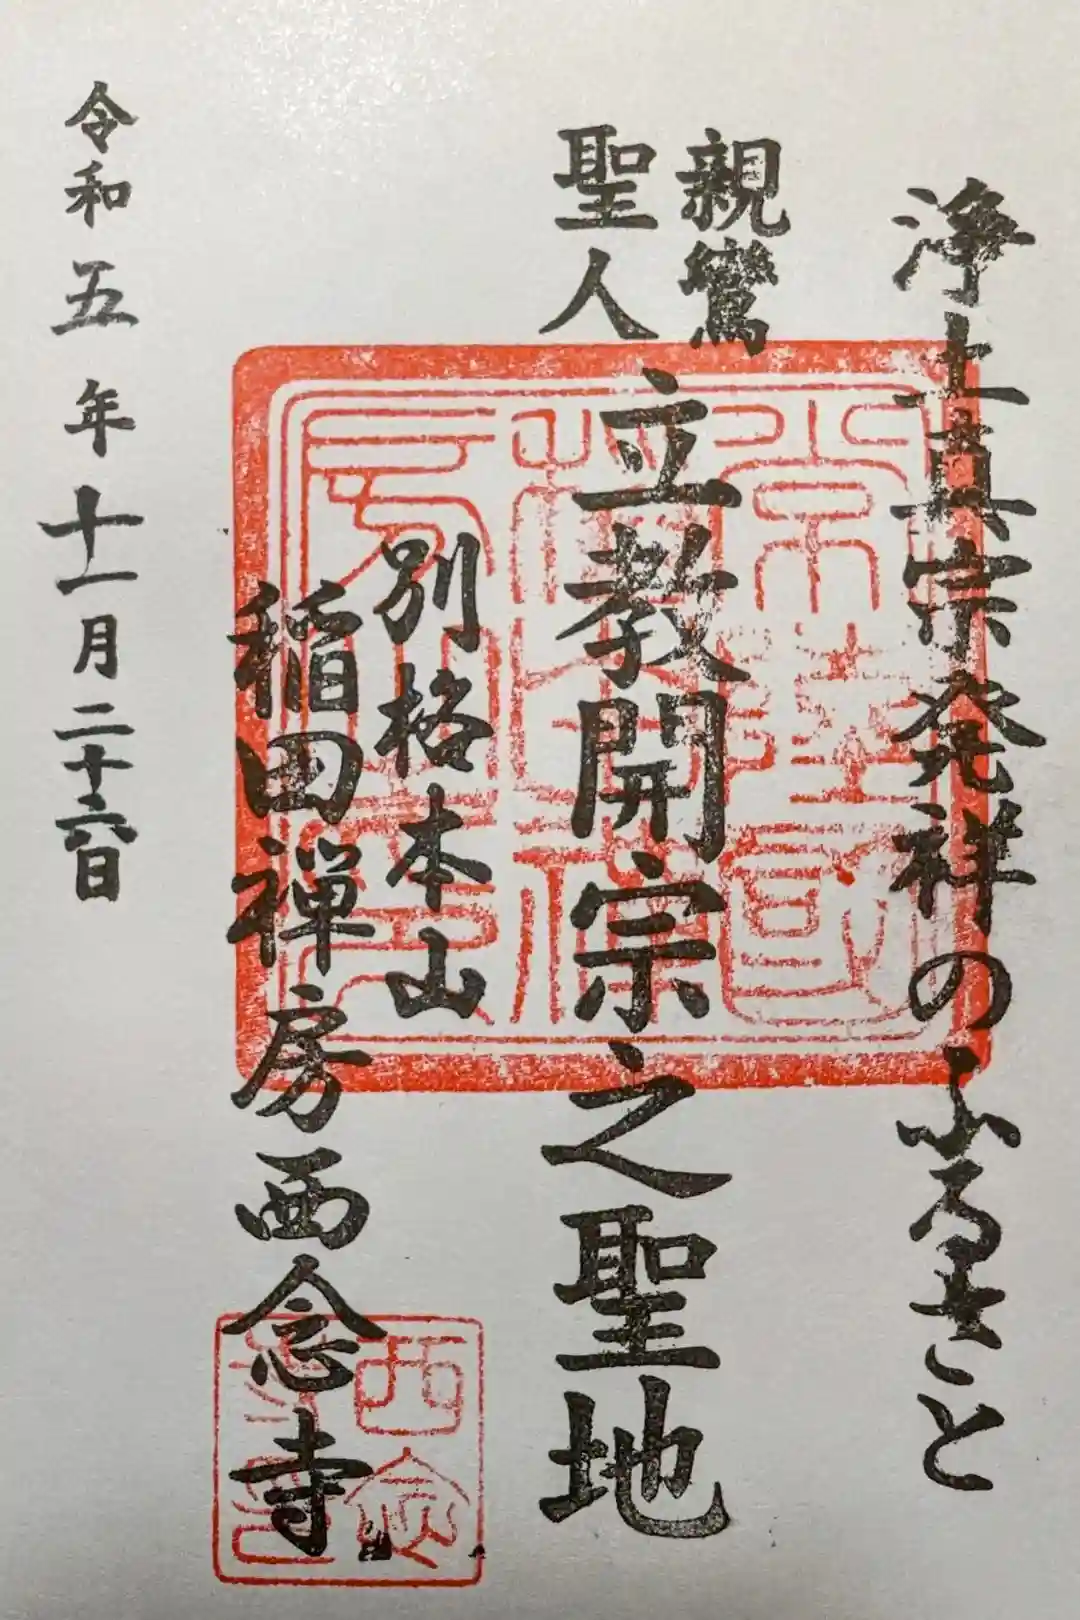 浄土真宗発祥のふるさと
親鸞
聖人
立教開宗之聖地
別格本山
稲田禅房西念寺
令和五年十一月二十六日
西念